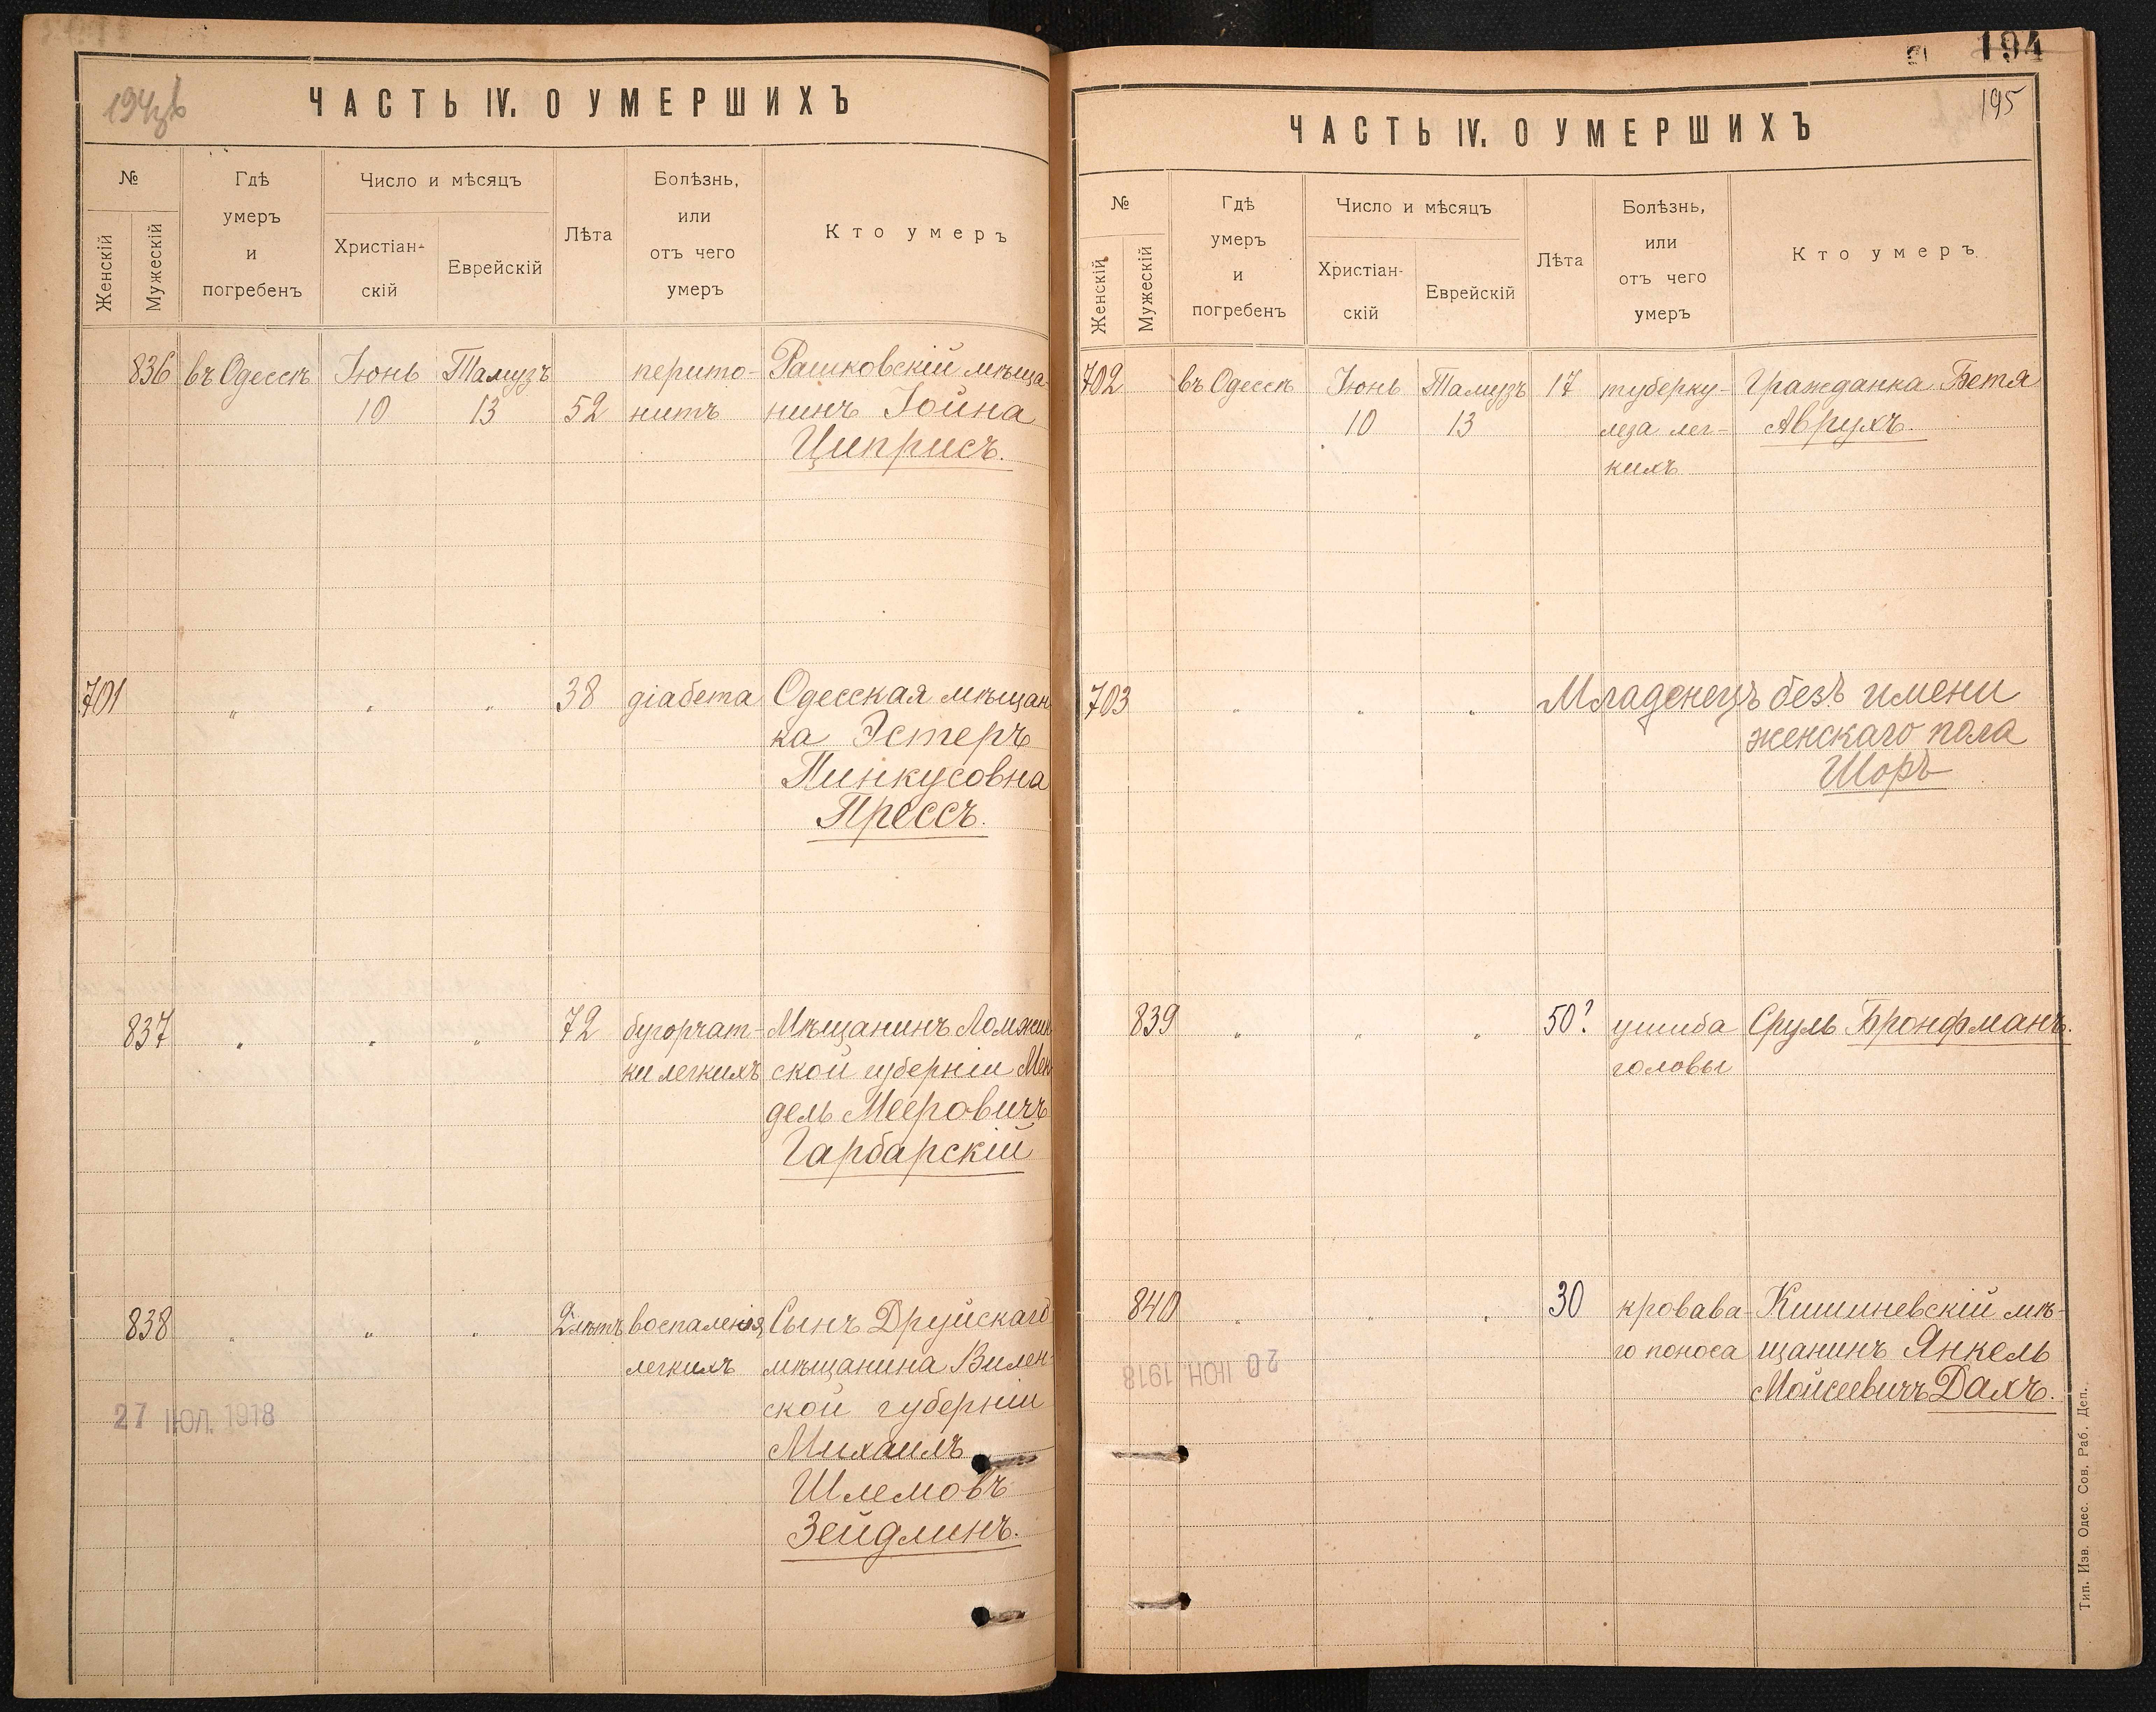 194об
ЧАСТЬ IV. О УМЕРШИХЪ
№
Женскій
Мужескій
Гдѣ
умеръ
и
погребенъ
Число и мѣсяцъ
Христіан-
скій
Еврейскій
Лѣта
Болѣзнь,
или
отъ чего
умеръ
Кто умеръ
836 въ Одессѣ Іюнь Тамузъ перито- Рашковскій мѣща-
10 13 52 нитъ нинъ Іойна
Циприсъ.
701 " " " 38 діабета Одесская мѣщан
ка Эстеръ
Пинкусовна
Прессъ.
837 " " " 72 бугорчат- Мѣщанинъ Ломжин
ки легкихъ ской губерніи Мен
дель Мееровичъ
Гарбарскій
838 " " " 2 лѣтъ воспаленія Сынъ Друйскаго
легкихъ мѣщанина Вилен-
ской губерніи
Михаилъ
Шлемовъ
Зейдлинъ.
27 ІЮЛ. 1918
194
195
ЧАСТЬ IV. О УМЕРШИХЪ
№
Женскій
Мужескій
Гдѣ
умеръ
и
погребенъ
Число и мѣсяцъ
Христіан-
скій
Еврейскій
Лѣта
Болѣзнь,
или
отъ чего
умеръ
Кто умеръ
702 въ Одессѣ Іюнь Тамузъ 17 туберку- Гражданка Бетя
10 13 леза лег- Аврухъ.
кихъ
703 " " " Младенецъ безъ имени
женскаго пола
Шоръ
839 " " " 50? ушиба Сруль Бронфманъ.
головы
840 " " " 30 кровава- Кишиневскій мѣ-
го поноса щанинъ Янкель
Моисеевичъ Дахъ.
20 ІЮН. 1918
Тип. Изв. Одес. Сов. Раб. Деп.